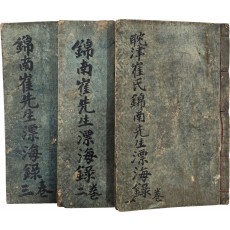 耽津崔氏錦南先生漂海錄 卷一
錦南崔先生漂海錄 卷二
錦南崔先生漂海錄 卷三